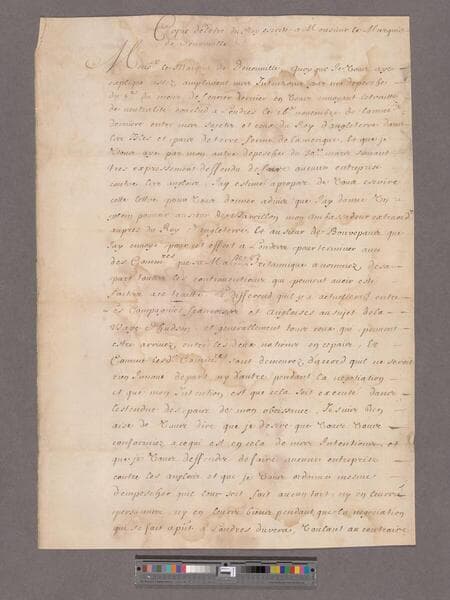 Copie de lettre du Roy escrite a Monsieur le Marquis
de Denonville
Mons.r le Marquis de Denonville quoyque Je Vous aye
expliqué assez amplement mes Intentions par ma depesche
du mois de dernier en Vous envoyant le traitté
de neutralité conclud a Londres le 16.e novembre de l'année
derniere entre mes sujets et ceux du Roy d'angleterre dans
les Isles et pays de terre ferme de lamerique, et que je
Vous aye par mon autre depesche du 30.e mars suivant
tres expressement deffendu de faire aucune entreprise
contre les anglois, J'ay estimé apropos de Vous escrire
cette lettre pour Vous donner advis que J'ay donné Un
plein pouvoir au sieur de Barrillon mon Ambassadeur extraord.e
aupres du Roy d'Angleterre, et au sieur de Bonrepaus que
J'ay envoyé pour cet effect a Londres pour terminer avec
des Comm.res que sa Ma.té Britannique a nommez de sa
part toutes les contraventions qui peuvent avoir esté
faites a ce traitté le differend qui y a actuellement entre
les Compagnies francoises et Angloises au sujet de la
Baye d'hudson, et generallement tous ceux qui peuvent
estre arrivez entre les deux nations en ces pais, Et
Comme lesd. Comm.res sont demeurez d'accord qu'il ne seroit
rien Innové de part, ny d'autre pendant la negotiation
et que mon Intention est que cela soit executé dans
lestendue des pais de mon obeissance, Je suis bien
aise de Vous dire que je desire que Vous Vous
conformiez a ce qui est en cela de mes Intentions, et
que je Vous deffendz de faire aucune entreprise
contre les anglois et que je Vous ordonne mesme
d'empescher que leur soit fait aucun tort, ny en leurs
personnes, ny en leurs biens pendant que la negotiation
qui se fait a Londres durera, Voulant au contraire